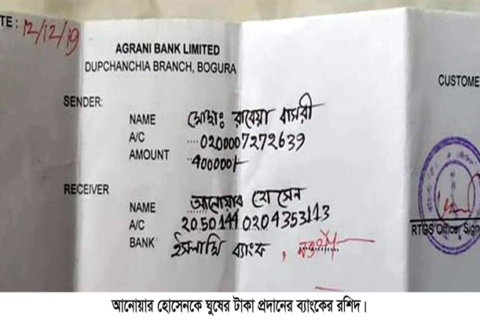 TE: 12/12/19
AGRANI BANK LIMITED
DUPCHANCHIA BRANCH, BOGURA
CUSTOME
SENDER:
NAME মোছাঃ রাবেয়া বাসরী
A/C 0200007272639
AMOUNT 400000/-
RECEIVER
NAME আনোয়ার হোসেন
A/C 20501440204353113
BANK ইসলামি ব্যাংক,
RTGS Officer Sign
আনোয়ার হোসেনকে ঘুষের টাকা প্রদানের ব্যাংকের রশিদ।